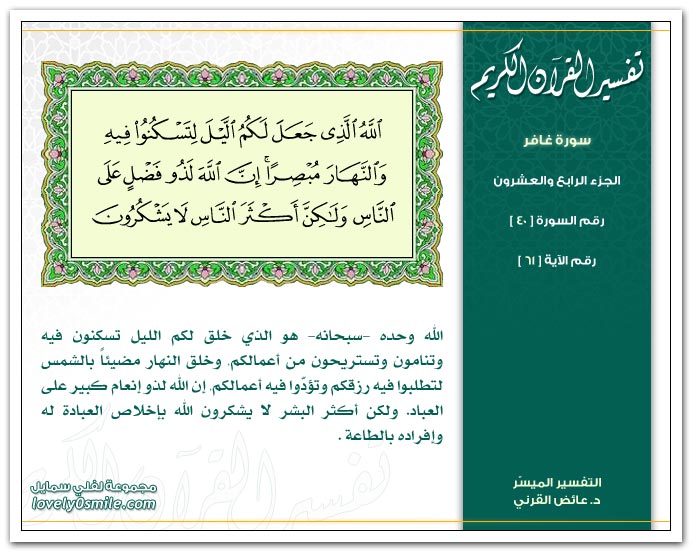 تفسير القرآن الكريم
سورة غافر
الجزء الرابع والعشرون
رقم السورة [ ٤٠ ]
رقم الآية [ ٦١ ]
ٱللَّهُ ٱلَّذِى جَعَلَ لَكُمُ ٱلَّيْلَ لِتَسْكُنُوا۟ فِيهِ
وَٱلنَّهَارَ مُبْصِرًا ۚ إِنَّ ٱللَّهَ لَذُو فَضْلٍ عَلَى
ٱلنَّاسِ وَلَـٰكِنَّ أَكْثَرَ ٱلنَّاسِ لَا يَشْكُرُونَ
الله وحده -سبحانه- هو الذي خلق لكم الليل تسكنون فيه
وتنامون وتستريحون من أعمالكم، وخلق النهار مضيئاً بالشمس
لتطلبوا فيه رزقكم وتؤدّوا فيه أعمالكم، إن الله لذو إنعام كبير على
العباد، ولكن أكثر البشر لا يشكرون الله بإخلاص العبادة له
وإفراده بالطاعة .
التفسير الميسّر
د. عائض القرني
مجموعة لفلي سمايل
lovely0smile.com
تفسير القرآن الكريم